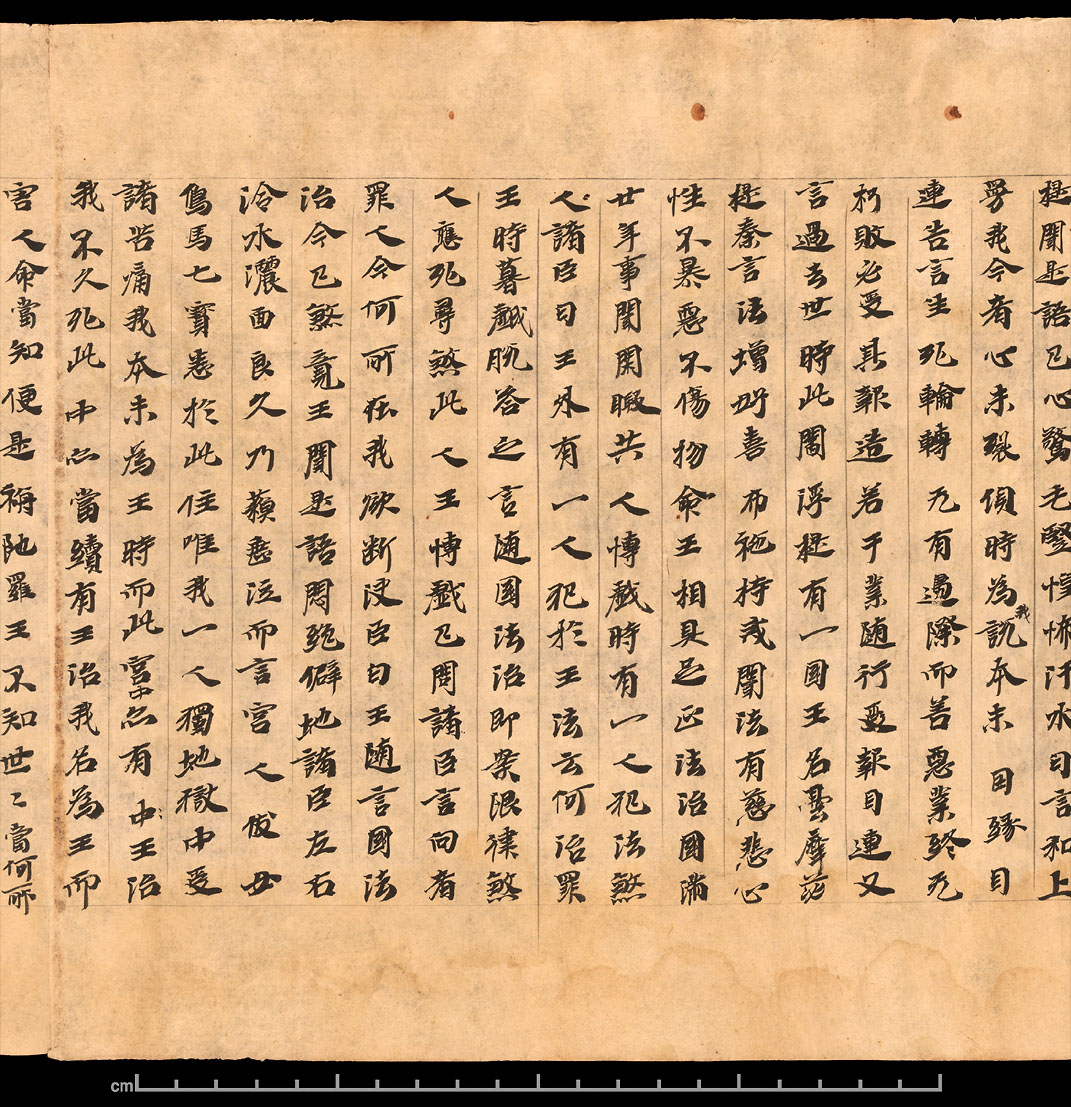 提聞是語已心驚毛竪惶怖汗水白言和上
勞我今者心未裂傾時為我說本末因緣目
連告言生死輪轉无有邊際而善惡業終无
朽敗必受其報造若干業隨行受報目連又
言過去世時此閻浮提有一國王名曇摩苾
提秦言法增好喜布施持戒聞法有慈悲心
性不暴惡不傷物命王相具足正法治國滿
廿年事閒閑暇共人博戲時有一人犯法煞
人諸臣白王外有一人犯於王法云何治罪
王時暮戲脫答之言隨國法治即案限律煞
人應死尋煞此人王博戲已問諸臣言向者
罪人今何所在我欲斷決臣白王隨言國法
治今已煞竟王聞是語悶絕僻地諸臣左右
冷水灑面良久乃蘇垂泣而言宮人伎女
象馬七寶悉於此住唯我一人獨地獄中受
諸苦痛我本未為王時而此宮中亦有中王治
我不久死此中亦當續有王治我名為王而
害人命當知便是栴陀羅王不知世〻當何所